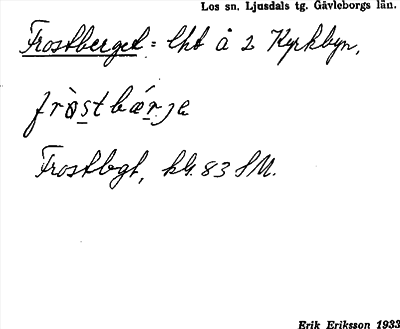 Los sn. Ljusdals tg. Gävleborgs län.
Frostberget: lht å 2 Kyrkbyn,
frò̀stbǽrje
Frostbgt, 83 SM.
Erik Eriksson 1933